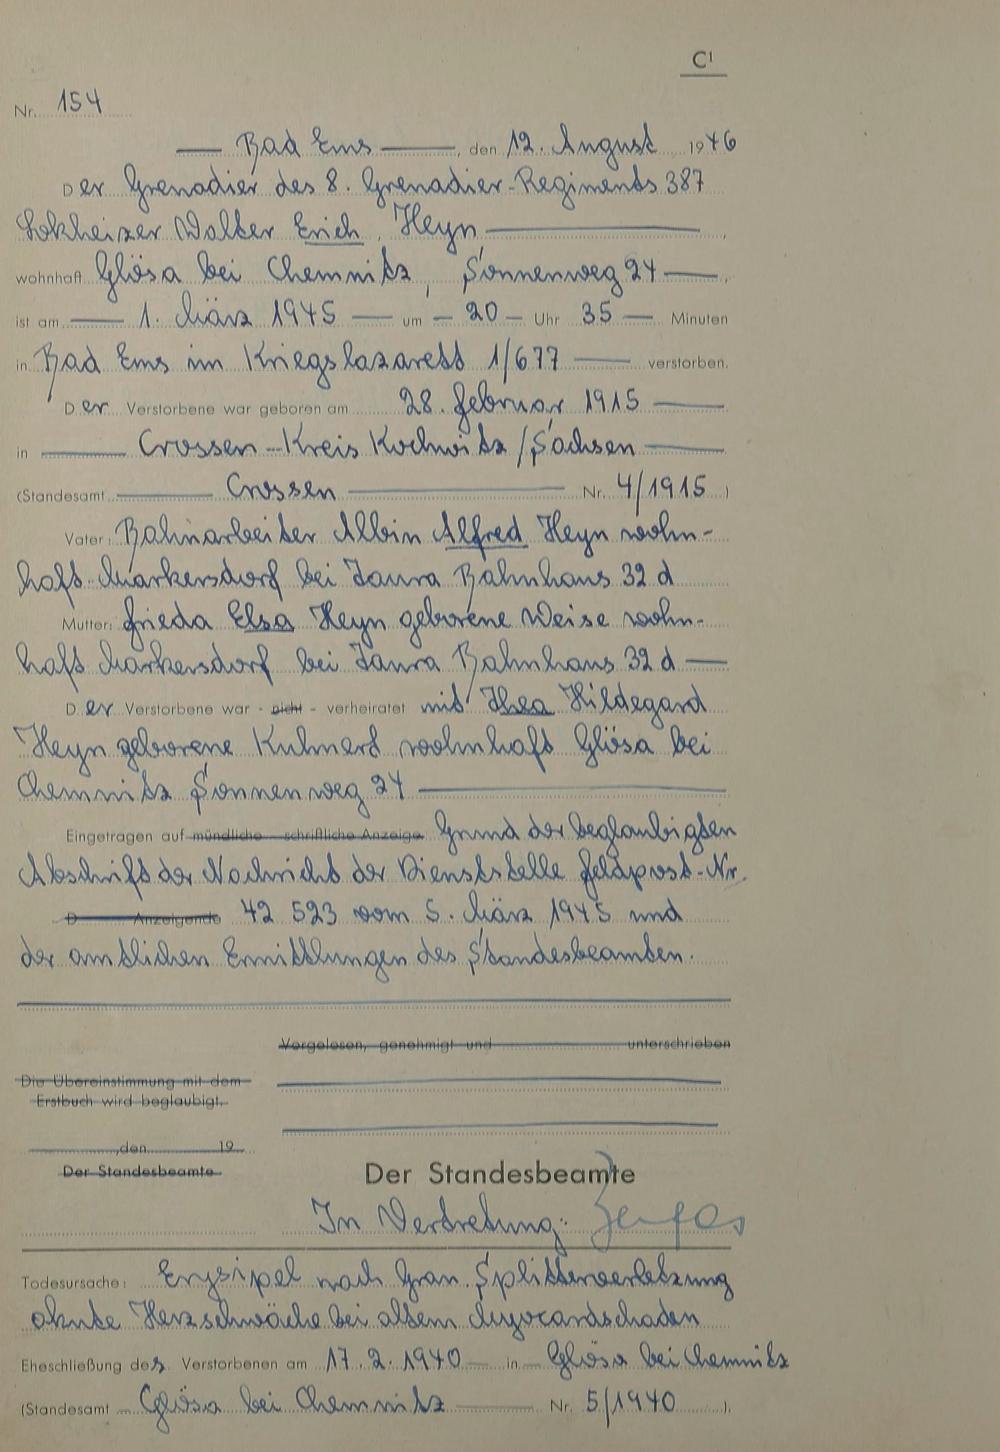 C1
Nr. 154
Bad Ems, den 12. August 1946
Der Grenadier des 8. Grenadier-Regiments 387
Lokheizer Walter Erich Heyn,
wohnhaft Glösa bei Chemnitz, Sonnenweg 24,
ist am 1. März 1945 um 20 Uhr 35 Minuten
in Bad Ems im Kriegslazarett 1/677 verstorben.
Der Verstorbene war geboren am 28. Februar 1915
in Crossen - Kreis Rochlitz / Sachsen
(Standesamt Crossen Nr. 4/1915)
Vater: Bahnarbeiter Albin Alfred Heyn wohn-
haft Markersdorf bei Taura Bahnhaus 32 d
Mutter: Frieda Elsa Heyn geborene Weise wohn-
haft Markersdorf bei Taura Bahnhaus 32 d
Der Verstorbene war - nicht - verheiratet mit Thea Hildegard
Heyn geborene Kuhnert wohnhaft Glösa bei
Chemnitz Sonnenweg 24
Eingetragen auf mündliche - schriftliche Anzeige Grund der beglaubigten
Abschrift der Nachricht der Dienststelle Feldpost-Nr.
D Anzeigende 42 523 vom 5. März 1945 und
der amtlichen Ermittlungen des Standesbeamten.
Vorgelesen, genehmigt und unterschrieben
Die Übereinstimmung mit dem
Erstbuch wird beglaubigt.
, den 19
Der Standesbeamte
Der Standesbeamte
In Vertretung:
Todesursache: Erysipel nach Gran. Splitterverletzung
akute Herzschwäche bei altem Myocardschaden
Eheschließung des Verstorbenen am 17.2.1940 in Glösa bei Chemnitz
(Standesamt Glösa bei Chemnitz Nr. 5/1940).